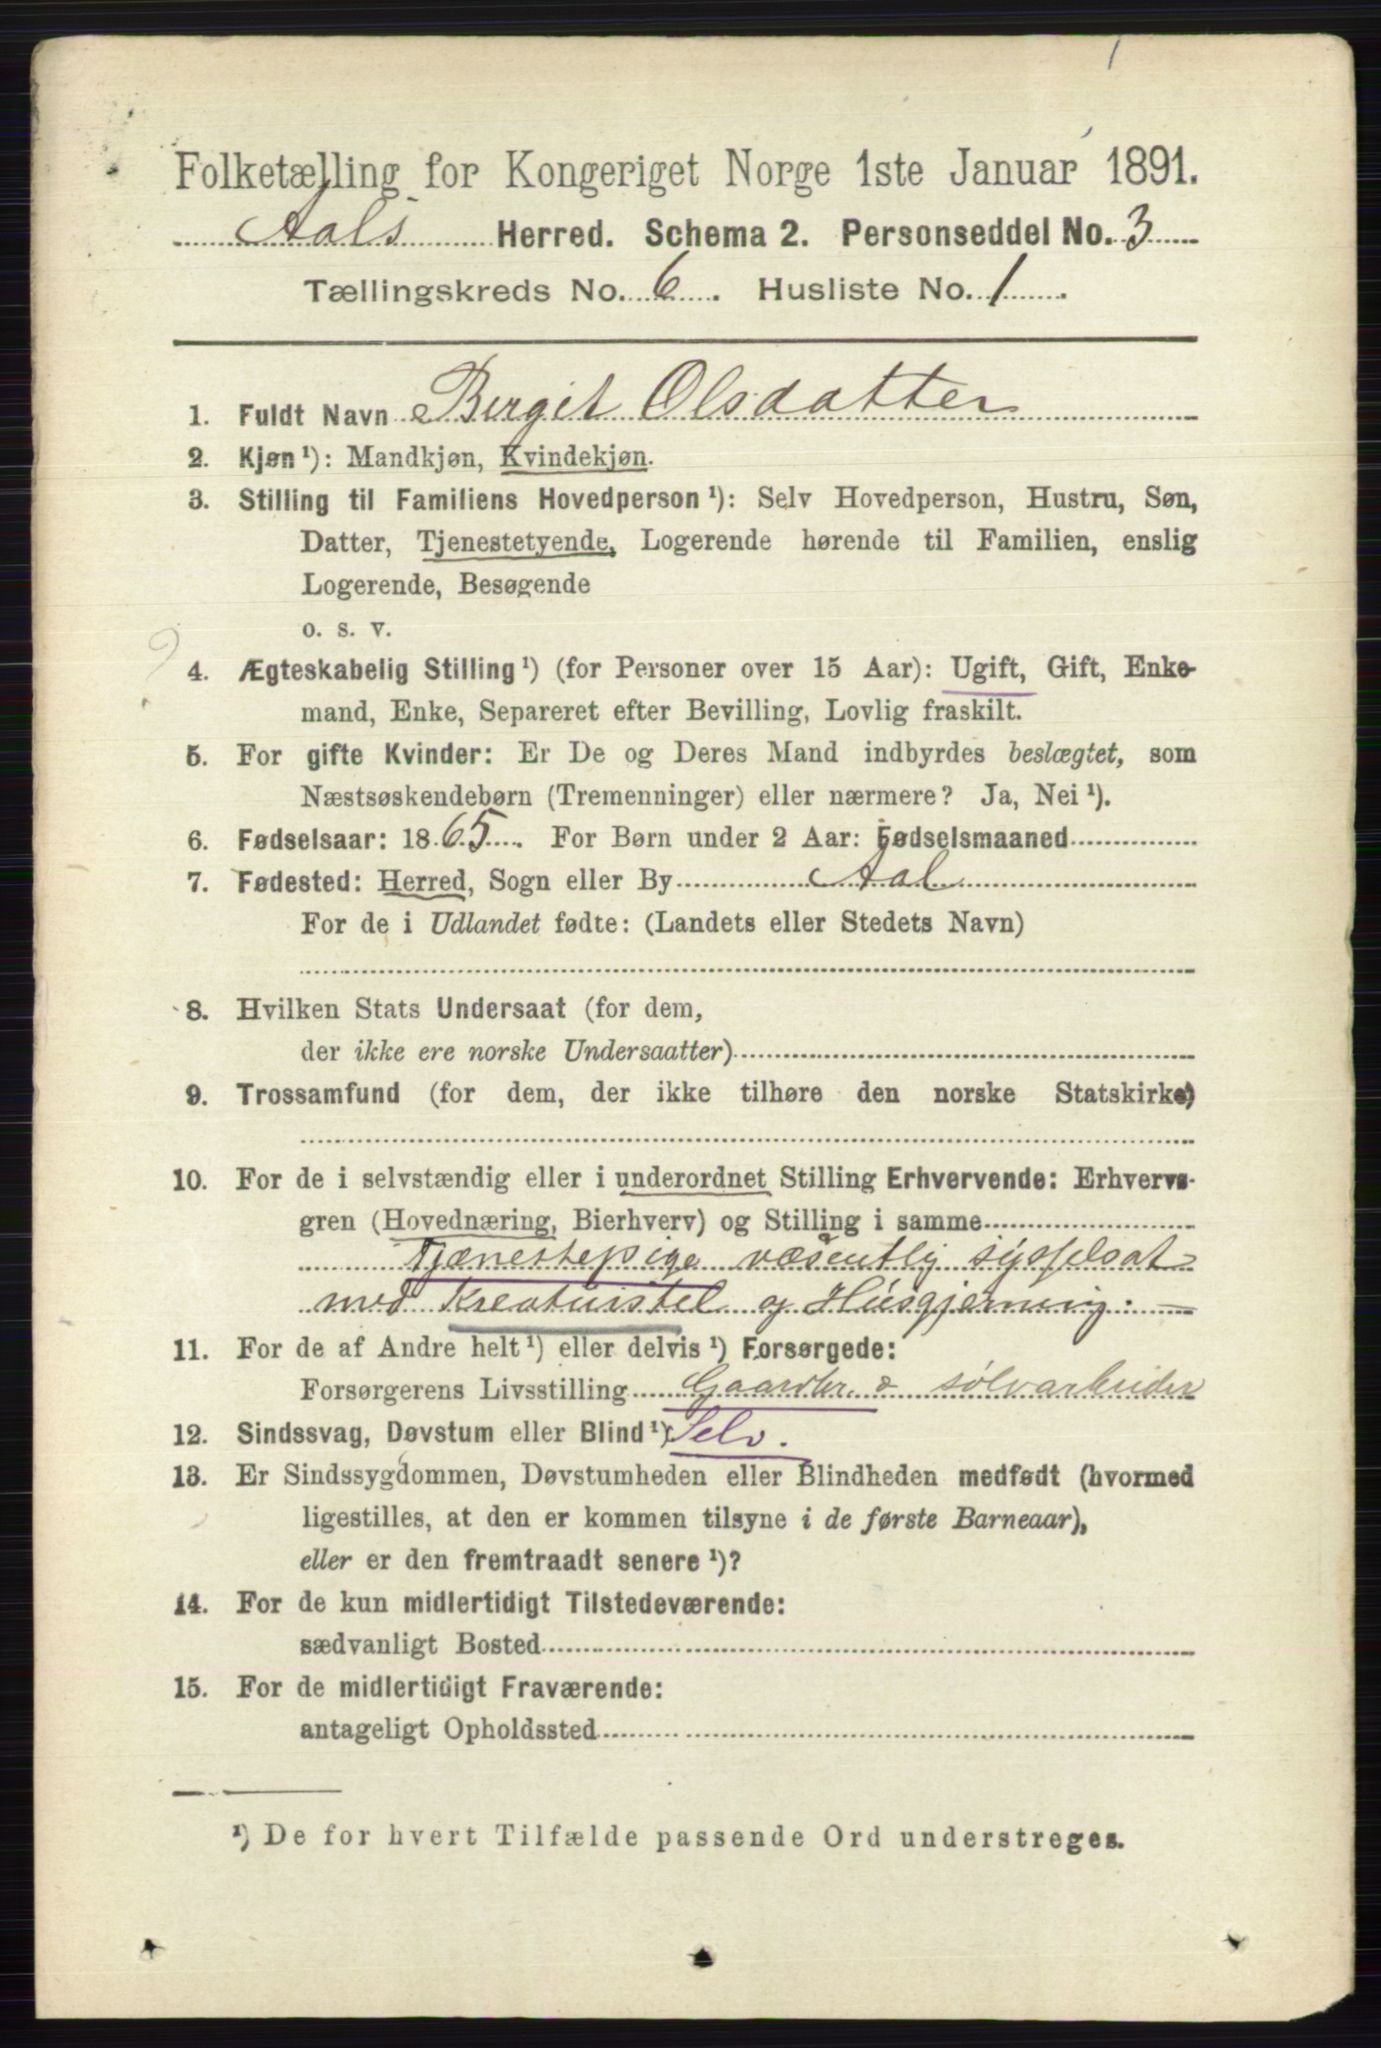 1
Folketælling for Kongeriget Norge 1ste Januar 1891.
Aals Herred. Schema 2. Personseddel No. 3
Tællingskreds No. 6. Husliste No. 1.
1. Fuldt Navn Birgit Olsdatter
2. Kjøn ¹): Mandkjøn, Kvindekjøn.
3. Stilling til Familiens Hovedperson ¹): Selv Hovedperson, Hustru, Søn,
Datter, Tjenestetyende, Logerende hørende til Familien, enslig
Logerende, Besøgende
o. s. v.
4. Ægteskabelig Stilling ¹) (for Personer over 15 Aar): Ugift, Gift, Enke-
mand, Enke, Separeret efter Bevilling, Lovlig fraskilt.
5. For gifte Kvinder: Er De og Deres Mand indbyrdes beslægtet, som
Næstsøskendebørn (Tremenninger) eller nærmere? Ja, Nei ¹).
6. Fødselsaar: 1865. For Børn under 2 Aar: Fødselsmaaned
7. Fødested: Herred, Sogn eller By Aal
For de i Udlandet fødte: (Landets eller Stedets Navn)
8. Hvilken Stats Undersaat (for dem,
der ikke ere norske Undersaatter)
9. Trossamfund (for dem, der ikke tilhøre den norske Statskirke)
10. For de i selvstændig eller i underordnet Stilling Erhvervende: Erhvervs-
gren (Hovednæring, Bierhverv) og Stilling i samme
Tjænestepige væsentlig sysselsat
med Kreaturstel og Husgjerning. —
11. For de af Andre helt ¹) eller delvis ¹) Forsørgede:
Forsørgerens Livsstilling Gaardbr. & sølvarbeider
12. Sindssvag, Døvstum eller Blind ¹) Selv.
13. Er Sindssygdommen, Døvstumheden eller Blindheden medfødt (hvormed
ligestilles, at den er kommen tilsyne i de første Barneaar),
eller er den fremtraadt senere ¹)?
14. For de kun midlertidigt Tilstedeværende:
sædvanligt Bosted
15. For de midlertidigt Fraværende:
antageligt Opholdssted
¹) De for hvert Tilfælde passende Ord understreges.